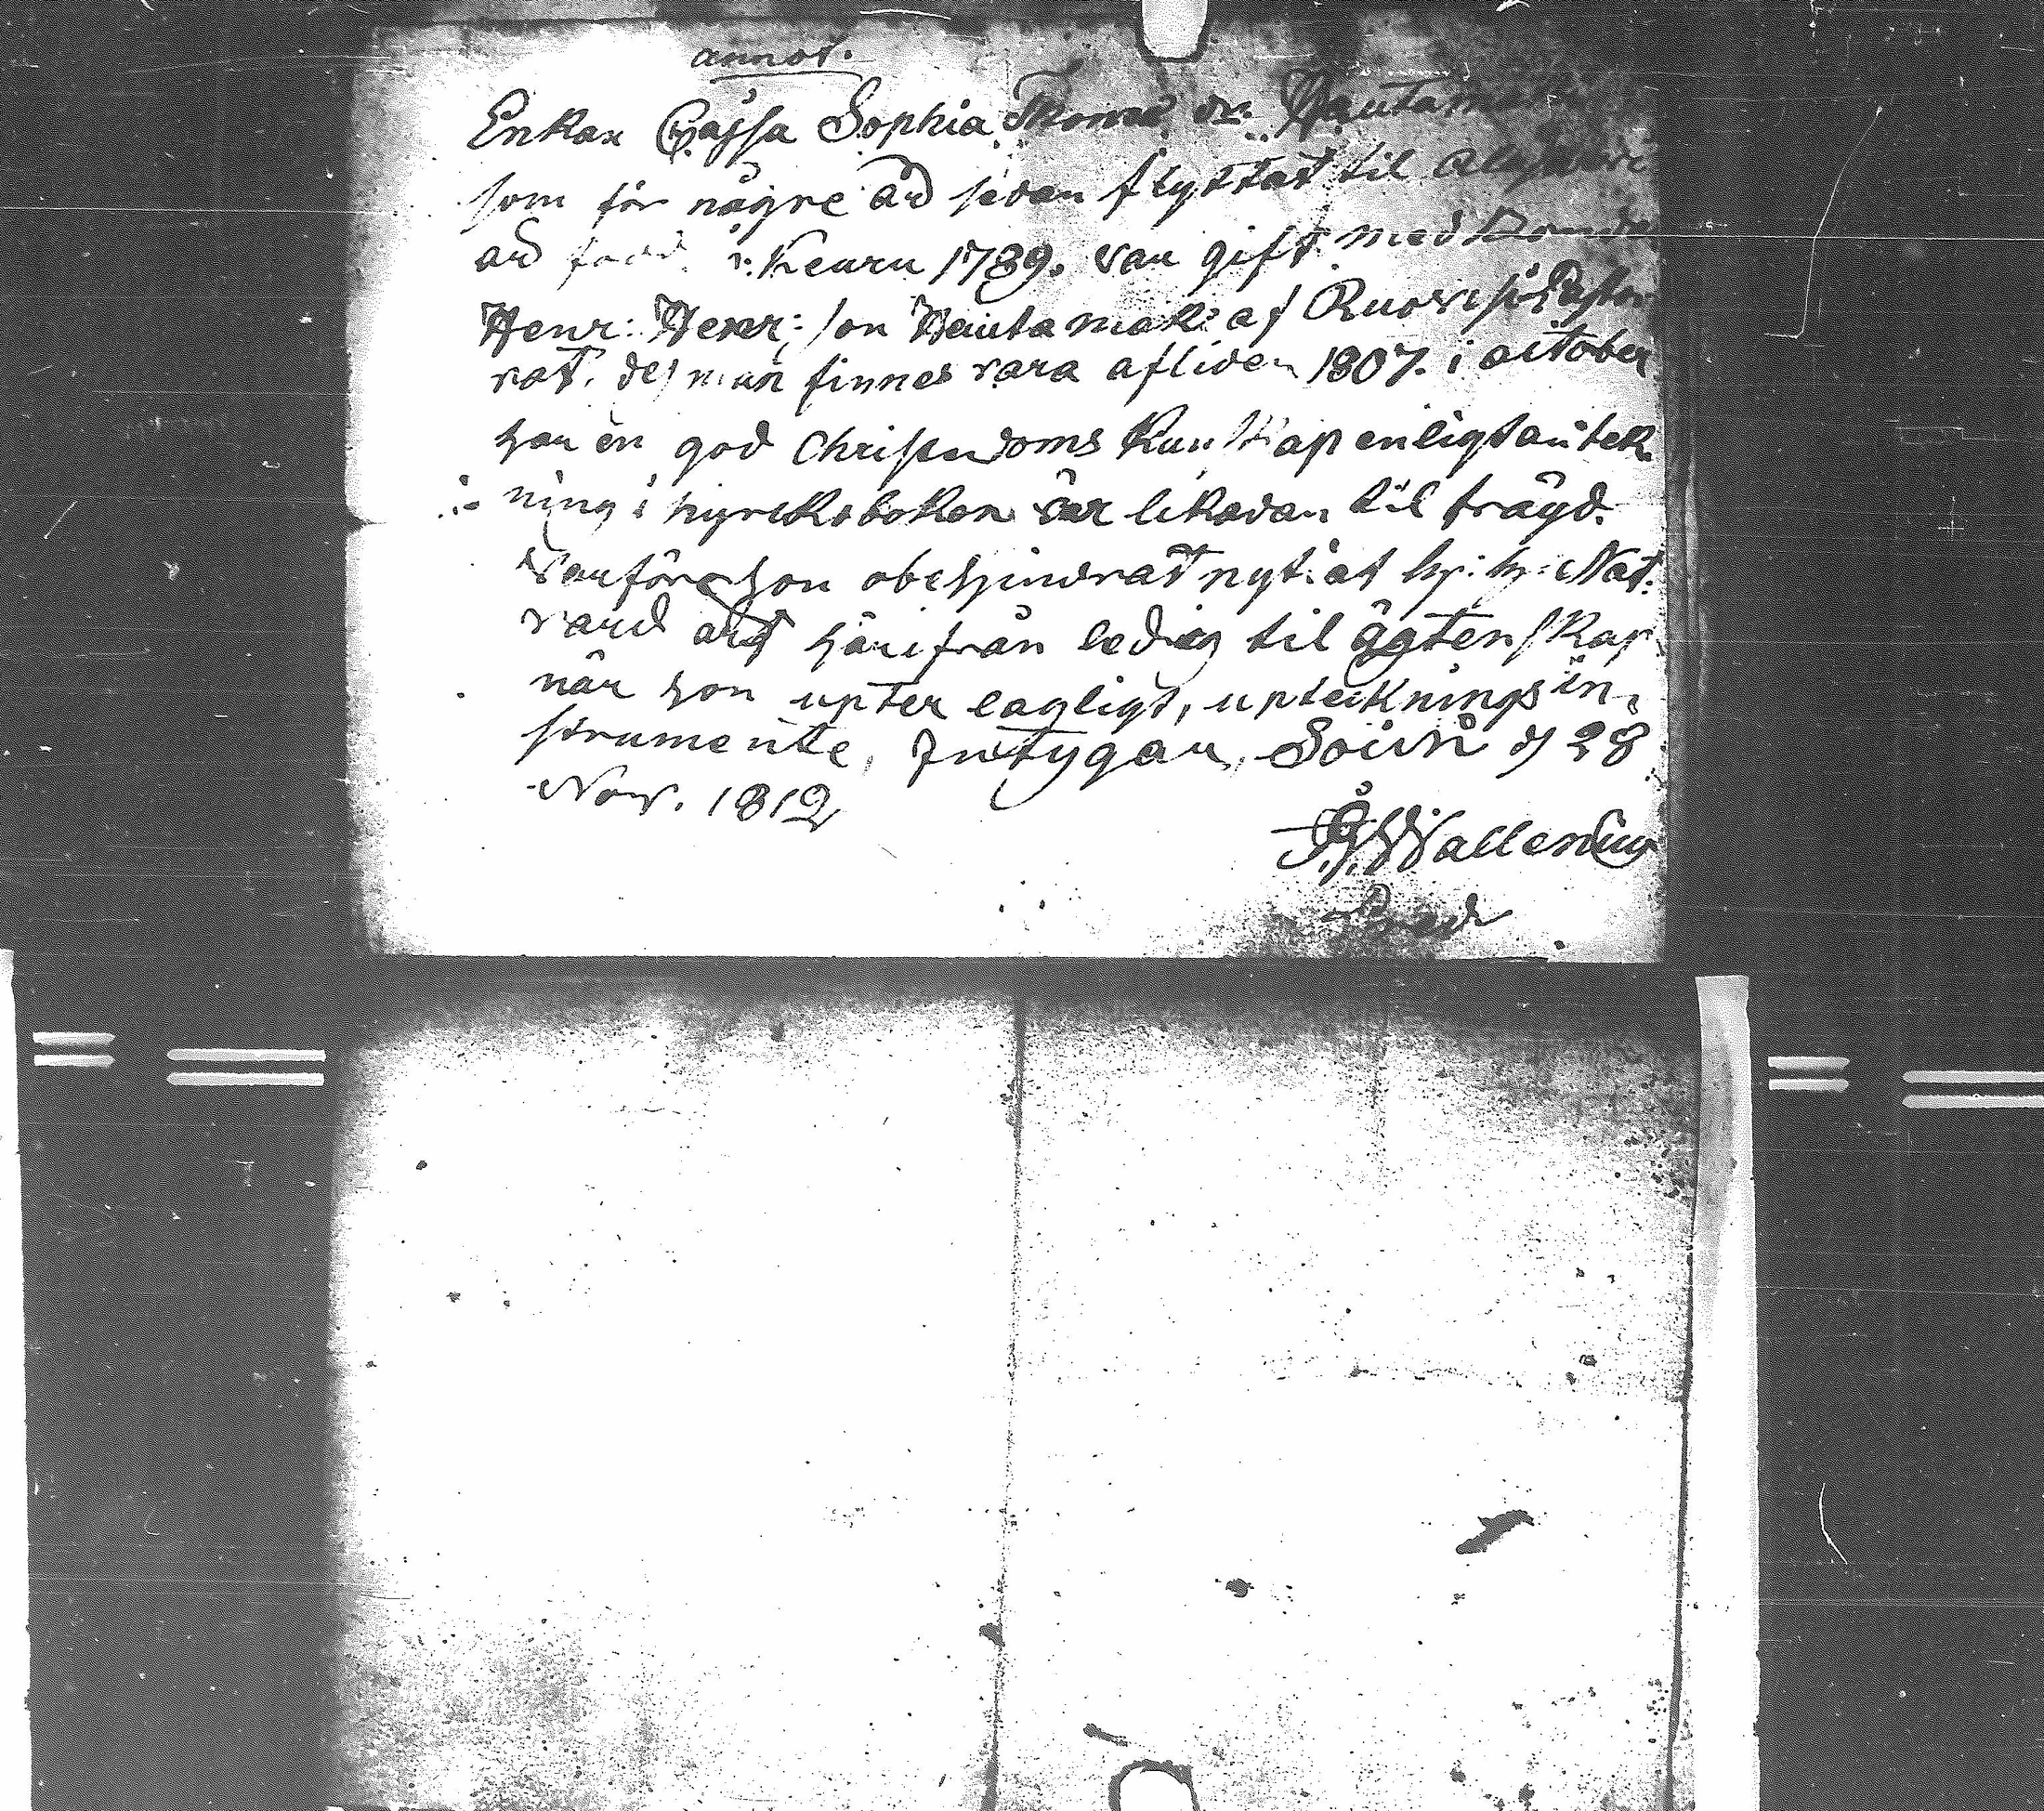 annot.
Enkan Cajsa Sophia Thomæ dr. Hautamäki
som för någre åd sedan flyttat til Alajärvi
äd född i Keuru 1789. var gift med
Henr: Henr: son Hautamäki af Ruovesi Pastor
rat. des man finnes vara afliden 1807. i october
har en god Christendoms Kunskap enligt antek
ning i kyrckoboken är likadan til frägd.
Varföre hon obehindrat nytiat h: h: Nat:
vard och härifrån ledig til ägtenskap
när hon upter lagligt, uptecknings in,
strumente, Intygar, Soini d 28
Nov. 1812
Wallenius